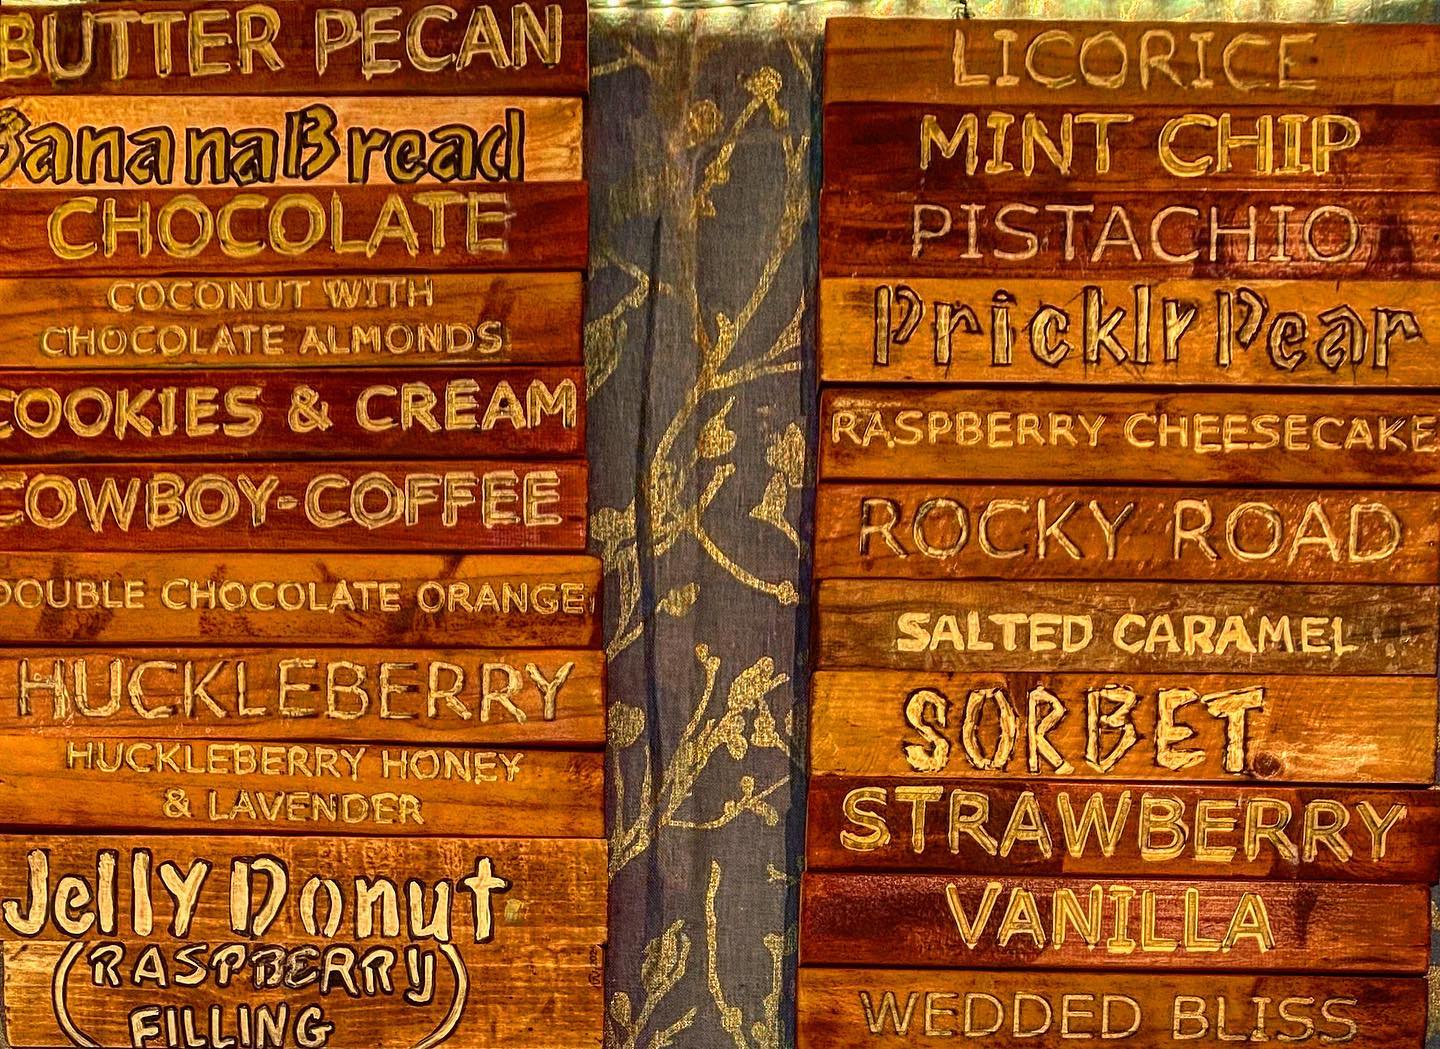 BUTTER PECAN
BananaBread
CHOCOLATE
COCONUT WITH
CHOCOLATE ALMONDS
COOKIES & CREAM
COWBOY-COFFEE
DOUBLE CHOCOLATE ORANGE
HUCKLEBERRY
HUCKLEBERRY HONEY
& LAVENDER
Jelly Donut
(RASPBERRY)
FILLING
LICORICE
MINT CHIP
PISTACHIO
Prickly Pear
RASPBERRY CHEESECAKE
ROCKY ROAD
SALTED CARAMEL
SORBET
STRAWBERRY
VANILLA
WEDDED BLISS